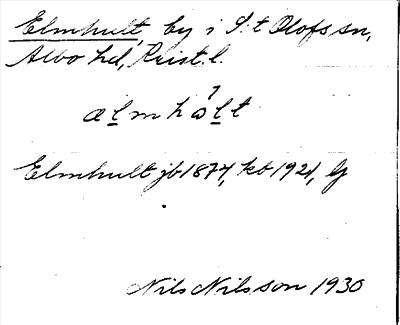 Elmhult, by i S:t Olofs sn,
Albo hd, Krist. l.
ælmhå̀lt
Elmhult jb 1874, kb 1921, Gf
Nils Nilsson 1930